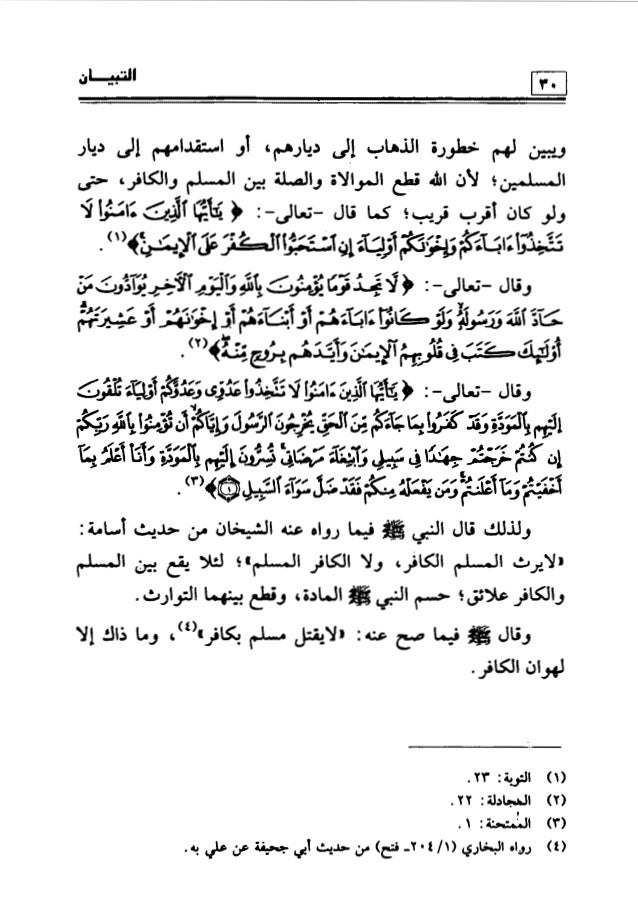 التبيــان
٣٠
ويبين لهم خطورة الذهاب إلى ديارهم، أو استقدامهم إلى ديار
المسلمين؛ لأن الله قطع الموالاة والصلة بين المسلم والكافر، حتى
ولو كان أقرب قريب؛ كما قال -تعالى-: ﴿ يَٰٓأَيُّهَا ٱلَّذِينَ ءَامَنُوا۟ لَا
تَتَّخِذُوٓا۟ ءَابَآءَكُمْ وَإِخْوَٰنَكُمْ أَوْلِيَآءَ إِنِ ٱسْتَحَبُّوا۟ ٱلْكُفْرَ عَلَى ٱلْإِيمَٰنِ ﴾(١).
وقال -تعالى-: ﴿ لَّا تَجِدُ قَوْمًا يُؤْمِنُونَ بِٱللَّهِ وَٱلْيَوْمِ ٱلْءَاخِرِ يُوَآدُّونَ مَنْ
حَآدَّ ٱللَّهَ وَرَسُولَهُۥ وَلَوْ كَانُوٓا۟ ءَابَآءَهُمْ أَوْ أَبْنَآءَهُمْ أَوْ إِخْوَٰنَهُمْ أَوْ عَشِيرَتَهُمْ
أُو۟لَٰٓئِكَ كَتَبَ فِى قُلُوبِهِمُ ٱلْإِيمَٰنَ وَأَيَّدَهُم بِرُوحٍ مِّنْهُ ﴾(٢).
وقال -تعالى-: ﴿ يَٰٓأَيُّهَا ٱلَّذِينَ ءَامَنُوا۟ لَا تَتَّخِذُوا۟ عَدُوِّى وَعَدُوَّكُمْ أَوْلِيَآءَ تُلْقُونَ
إِلَيْهِم بِٱلْمَوَدَّةِ وَقَدْ كَفَرُوا۟ بِمَا جَآءَكُم مِّنَ ٱلْحَقِّ يُخْرِجُونَ ٱلرَّسُولَ وَإِيَّاكُمْ أَن تُؤْمِنُوا۟ بِٱللَّهِ رَبِّكُمْ
إِن كُنتُمْ خَرَجْتُمْ جِهَٰدًا فِى سَبِيلِى وَٱبْتِغَآءَ مَرْضَاتِى تُسِرُّونَ إِلَيْهِم بِٱلْمَوَدَّةِ وَأَنَا۠ أَعْلَمُ بِمَآ
أَخْفَيْتُمْ وَمَآ أَعْلَنتُمْ وَمَن يَفْعَلْهُ مِنكُمْ فَقَدْ ضَلَّ سَوَآءَ ٱلسَّبِيلِ ۝١ ﴾(٣).
ولذلك قال النبي ﷺ فيما رواه عنه الشيخان من حديث أسامة:
«لايرث المسلم الكافر، ولا الكافر المسلم»؛ لئلا يقع بين المسلم
والكافر علائق؛ حسم النبي ﷺ المادة، وقطع بينهما التوارث.
وقال ﷺ فيما صح عنه: «لايقتل مسلم بكافر»(٤)، وما ذاك إلا
لهوان الكافر.
(١) التوبة: ٢٣.
(٢) المجادلة: ٢٢.
(٣) الممتحنة: ١.
(٤) رواه البخاري (١/ ٢٠٤ـ فتح) من حديث أبي جحيفة عن علي به.